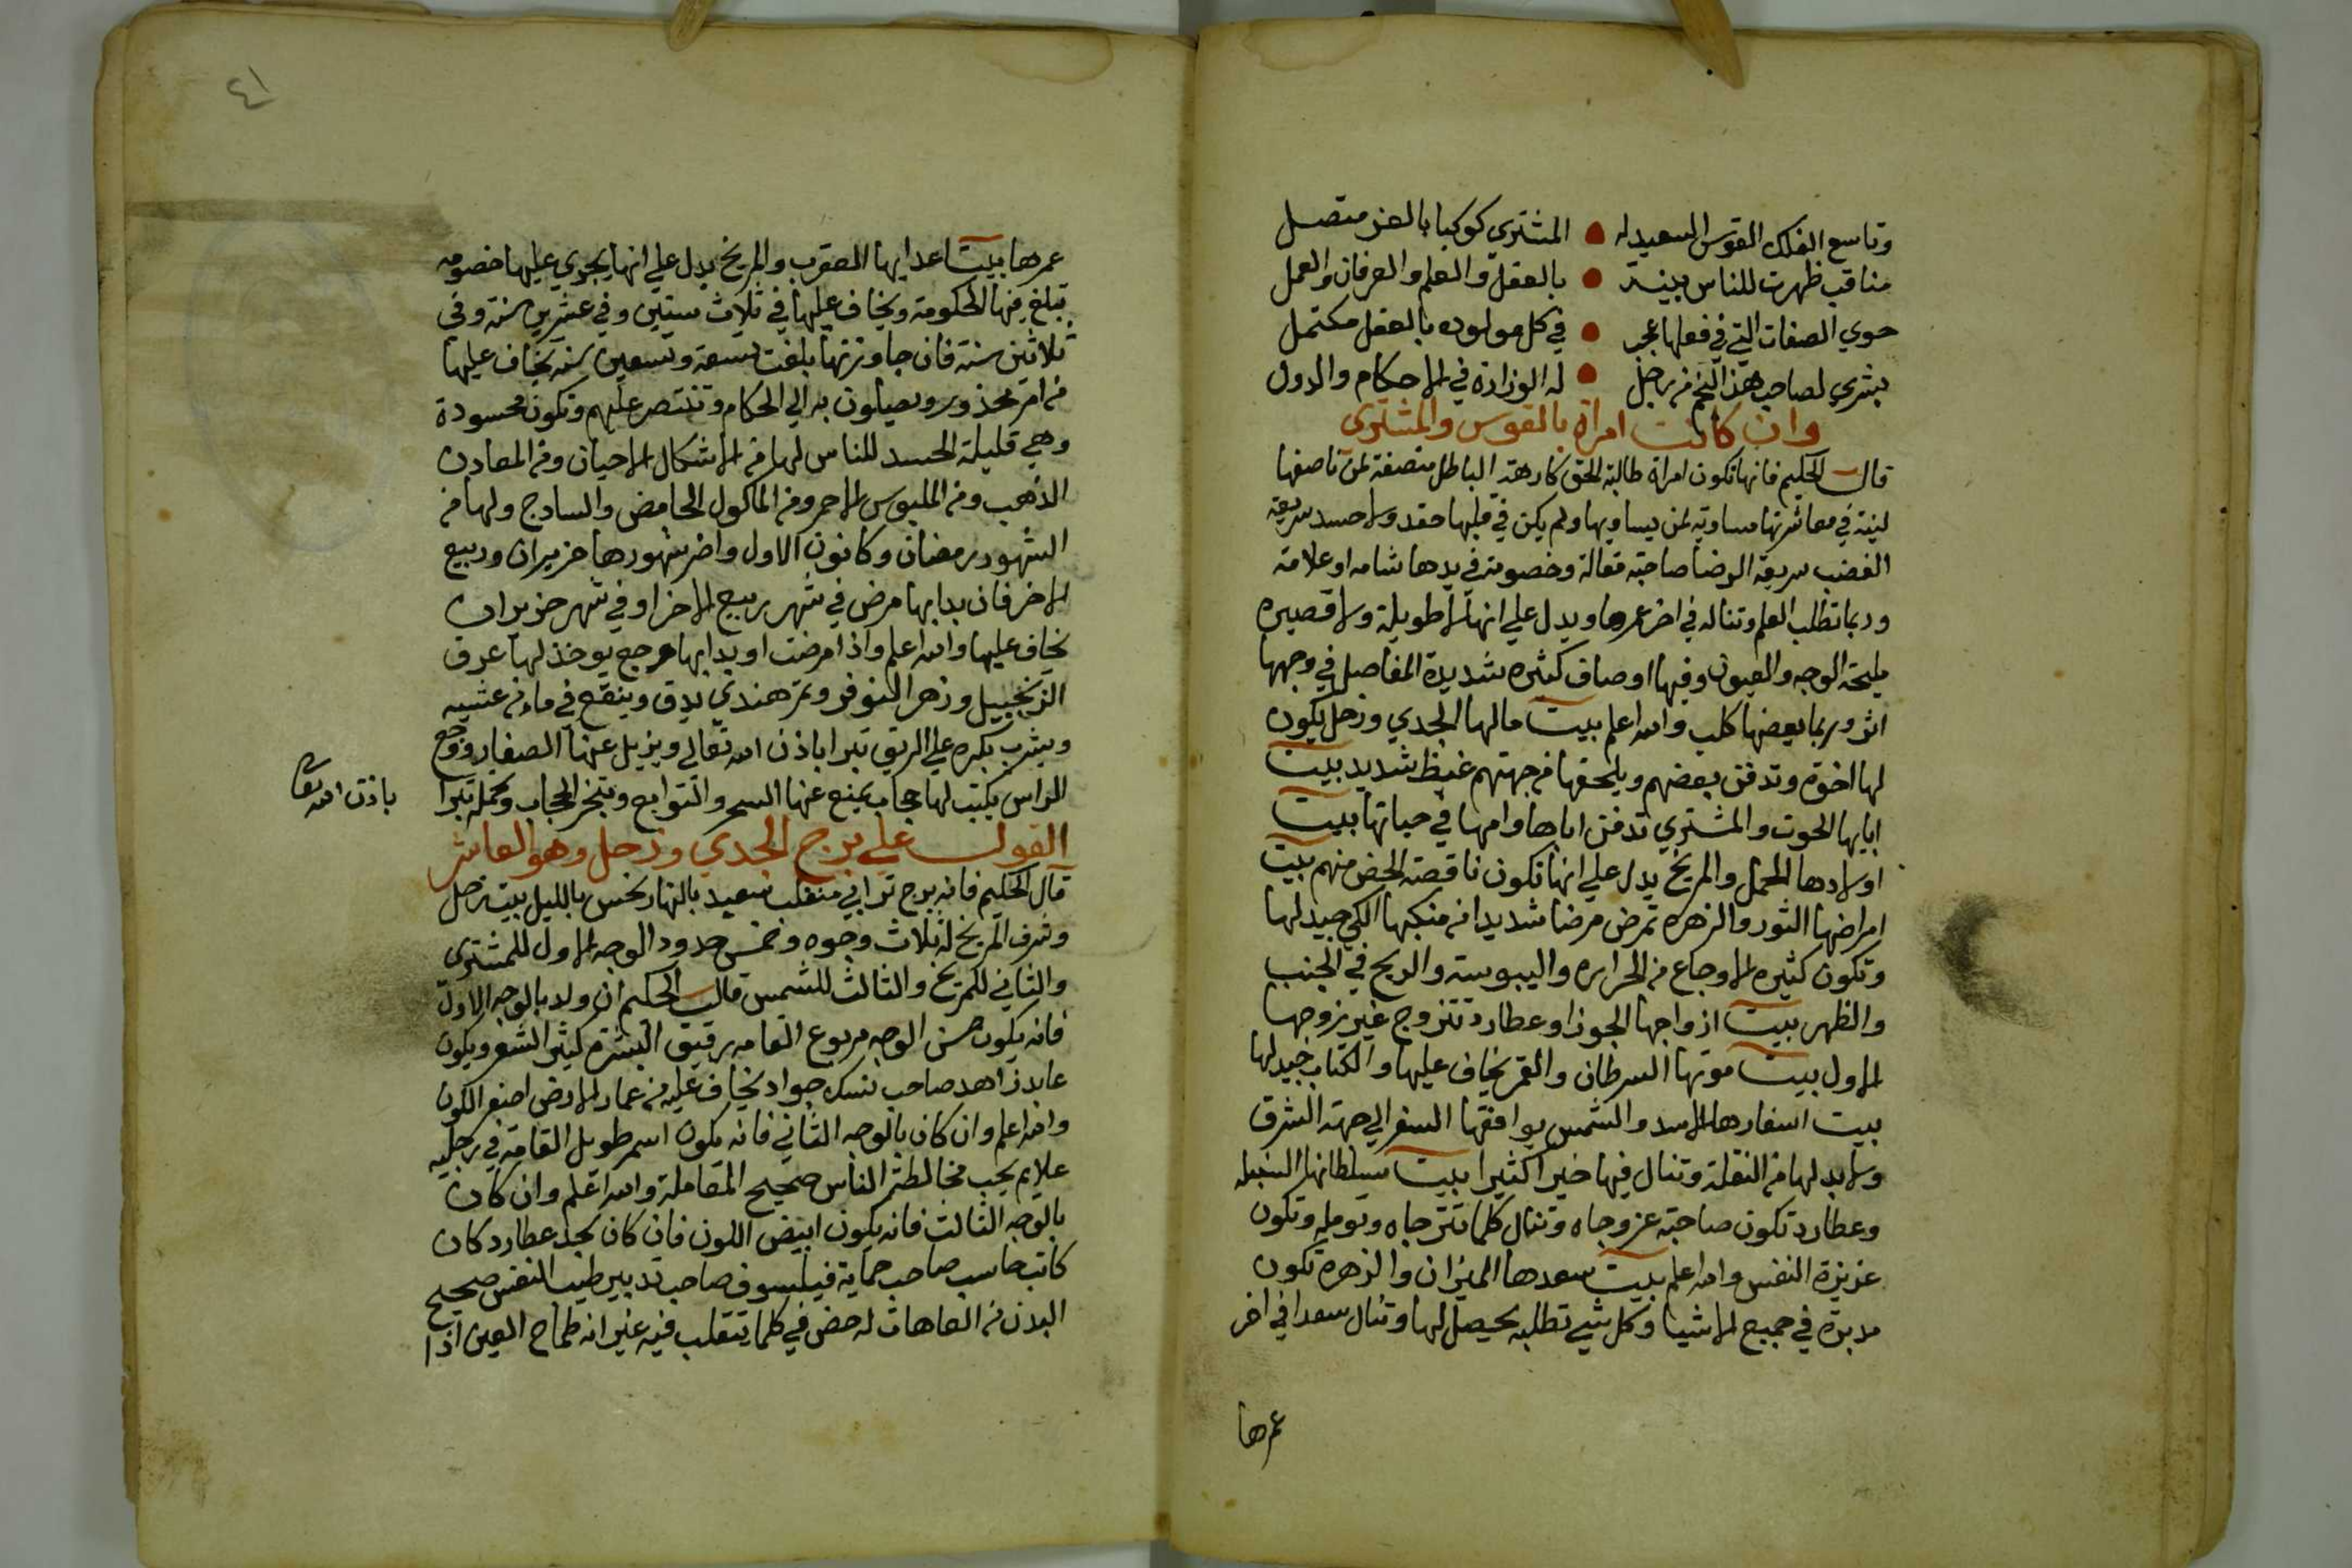 وتاسع الفلك القوس السعيد له المشتري كوكبا بالعز متصل
مناقب ظهرت للناس بينة بالعقل والعلم والعرفان والعمل
حوي الصفات التي في فعلها عجب في كل مولوده بالعقل مكتمل
بشري لصاحب هذا النجم من رجل له الوزارة في الاحكام والدول
وان كانت امراة بالقوس والمشتري
قال الحكيم فانها تكون امراة طالبة الحق كارهة الباطل منصفة لمن ناصفها
لينة في معاشرتها مساوية لمن يساويها ولم يكن في قلبها حقد ولا حسد سريعة
الغضب سريعة الرضا صاحبة مقالة وخصومة في يدها شامه او علامة
وربما تطلب العلم وتناله في اخر عمرها ويدل علي انها لا طويلة ولا قصيره
مليحة الوجه والعيون وفيها اوصاف كثيره شديدة المفاصل في وجهها
اثر وربما يعضها كلب والله اعلم بيت مالها الجدي وزحل يكون
لها اخوة وتدفن بعضهم ويلحقها من جهتهم غيظ شديد بيت
ابايها الحوت والمشتري تدفن اباها وامها في حياتها بيت
اولادها الحمل والمريخ يدل علي انها تكون ناقصة الحض منهم بيت
امراضها الثور والزهره تمرض مرضا شديدا من منكبها الكي جيد لها
وتكون كثيره الاوجاع من الحراره واليبوسة والريح في الجنب
والظهر بيت ازواجها الجوزا وعطارد تتزوج غير زوجها
الاول بيت موتها السرطان والقمر يخاف عليها والكتاب جيد لها
بيت اسفارها الاسد والشمس يوافقها السفر الي جهة الشرق
ولا بد لها من النقلة وتنال فيها خيرا كثيرا بيت سلطانها السنبله
وعطارد تكون صاحبة عز وجاه وتنال كلما تترجاه وتومله وتكون
عزيزة النفس والله اعلم بيت سعدها الميزان والزهره تكون
مدبرة في جميع الاشيا وكل شي تطلبه يحصل لها وتنال سعدا في اخر
عمرها
٤١
عمرها بيت اعدايها العقرب والمريخ يدل علي انها يجري عليها خصومه
تبلغ فيها الحكومة ويخاف عليها في ثلاث سنين وفي عشرين سنة وفي
ثلاثين سنة فان جاوزتها بلغت تسعة وتسعين سنه يخاف عليها
من امر محذور ويصلون به الي الحكام وتنتصر عليهم وتكون محسودة
وهي قليلة الحسد للناس لها من الاشكال الاحيان ومن المعادن
الذهب ومن الملبوس الاحمر ومن الماكول الحامض والسادج ولها من
الشهور رمضان وكانون الاول واضر شهورها حزيران وربيع
الاخر فان بدا بها مرض في شهر ربيع الاخر او في شهر حزيران
يخاف عليها والله اعلم واذا مرضت او بدا بها وجع يوخذ لها عرق
الزنجبيل وزهر النوفر وتمر هندي يدق وينقع في ماء من عشيه
ويشرب بكره علي الريق تبرا باذن الله تعالي ويزيل عنها الصفار ووجع
الراس يكتب لها حجاب يمنع عنها السحر والتوابع وتبخر الحجاب وتحمله تبرا
باذن الله تعا
القول علي برج الجدي وزحل وهو العاشر
قال الحكيم فانه برج ترابي منقلب سعيد بالنهار نحس بالليل بيت زحل
وشرف المريخ له ثلاث وجوه وخمس حدود الوجه الاول للمشتري
والثاني للمريخ والثالث للشمس قال الحكيم ان ولد بالوجه الاول
فانه يكون حسن الوجه مربوع القامه رقيق البشرة كثير الشعر ويكون
عابد زاهد صاحب نسك جواد يخاف عليه من عمار الارض اصفر اللون
والله اعلم وان كان بالوجه الثاني فانه يكون اسمر طويل القامة في رجليه
علايم يحب مخالطة الناس صحيح المعاملة والله اعلم وان كان
بالوجه الثالث فانه يكون ابيض اللون فان كان بحد عطارد كان
كاتب حاسب صاحب حماية فيلسوف صاحب تدبير طيب النفس صحيح
البدن من العاهات له حض في كلما يتقلب فيه غير انه طماح العين اذا